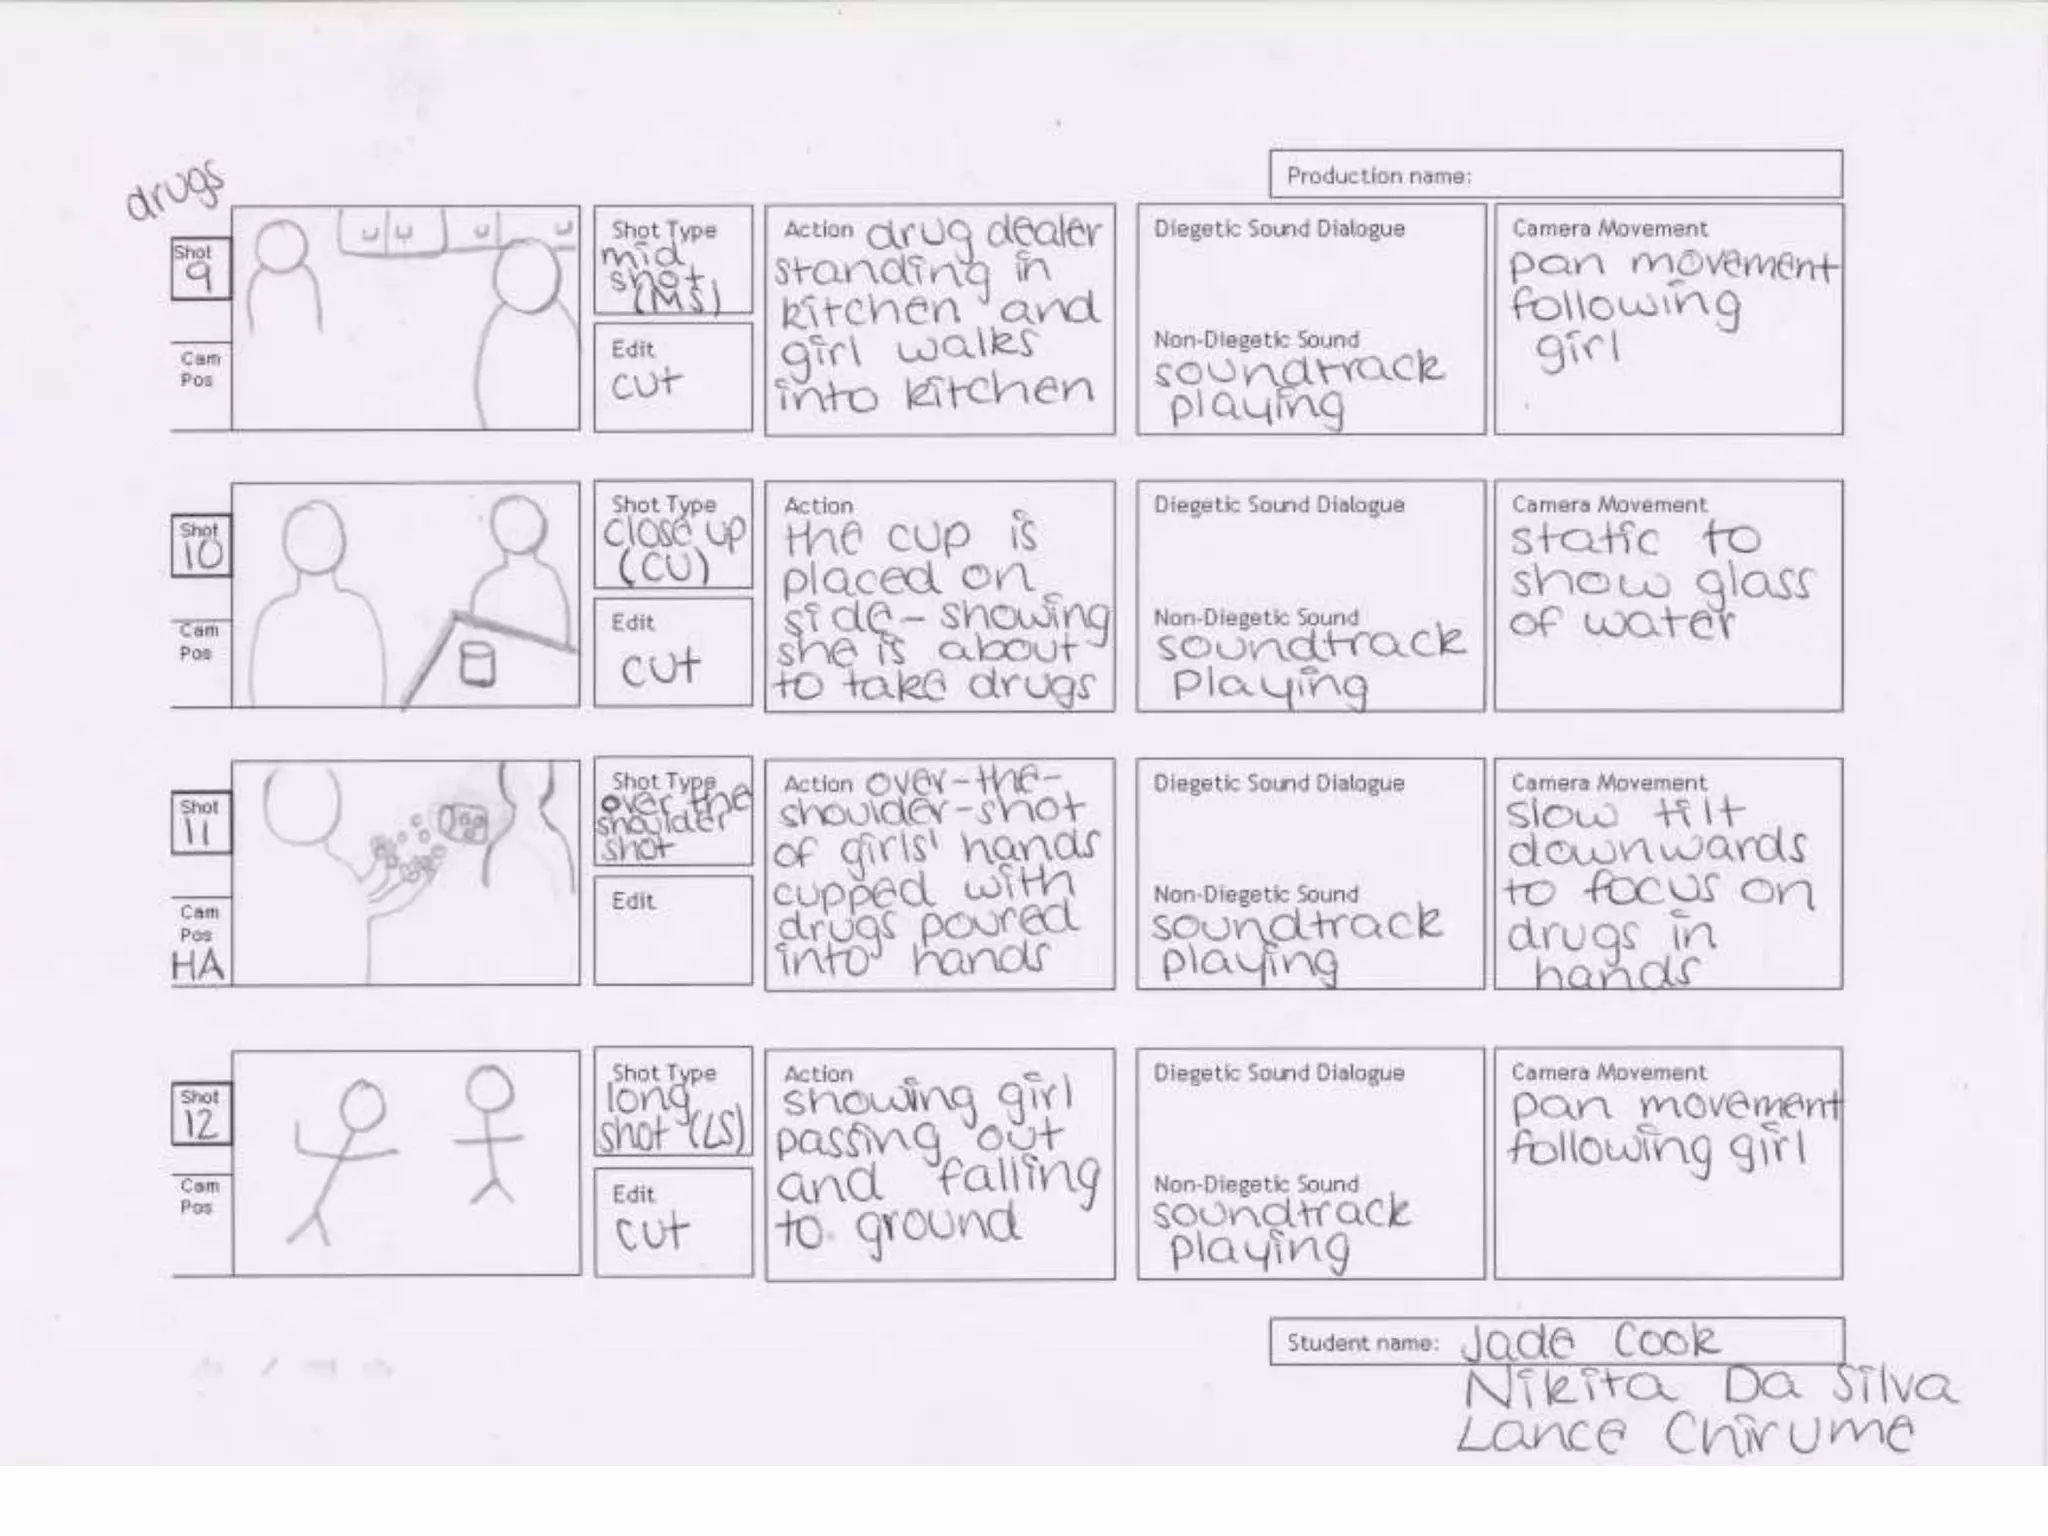 drugs
Production name:
Shot
9
Cam
Pos
Shot Type
mid
shot
(MS)
Edit
cut
Action drug dealer
standing in
kitchen and
girl walks
into kitchen
Diegetic Sound Dialogue
Non-Diegetic Sound
soundtrack
playing
Camera Movement
pan movement
following
girl
Shot
10
Cam
Pos
Shot Type
close up
(CU)
Edit
cut
Action
the cup is
placed on
side - showing
she is about
to take drugs
Diegetic Sound Dialogue
Non-Diegetic Sound
soundtrack
playing
Camera Movement
static to
show glass
of water
Shot
11
Cam
Pos
HA
Shot Type
over the
shoulder
shot
Edit
Action over-the-
shoulder-shot
of girls' hands
cupped with
drugs poured
into hands
Diegetic Sound Dialogue
Non-Diegetic Sound
soundtrack
playing
Camera Movement
slow tilt
downwards
to focus on
drugs in
hands
Shot
12
Cam
Pos
Shot Type
long
shot (LS)
Edit
cut
Action
showing girl
passing out
and falling
to ground
Diegetic Sound Dialogue
Non-Diegetic Sound
soundtrack
playing
Camera Movement
pan movement
following girl
Student name: Jade Cook
Nikita Da Silva
Lance Chirume